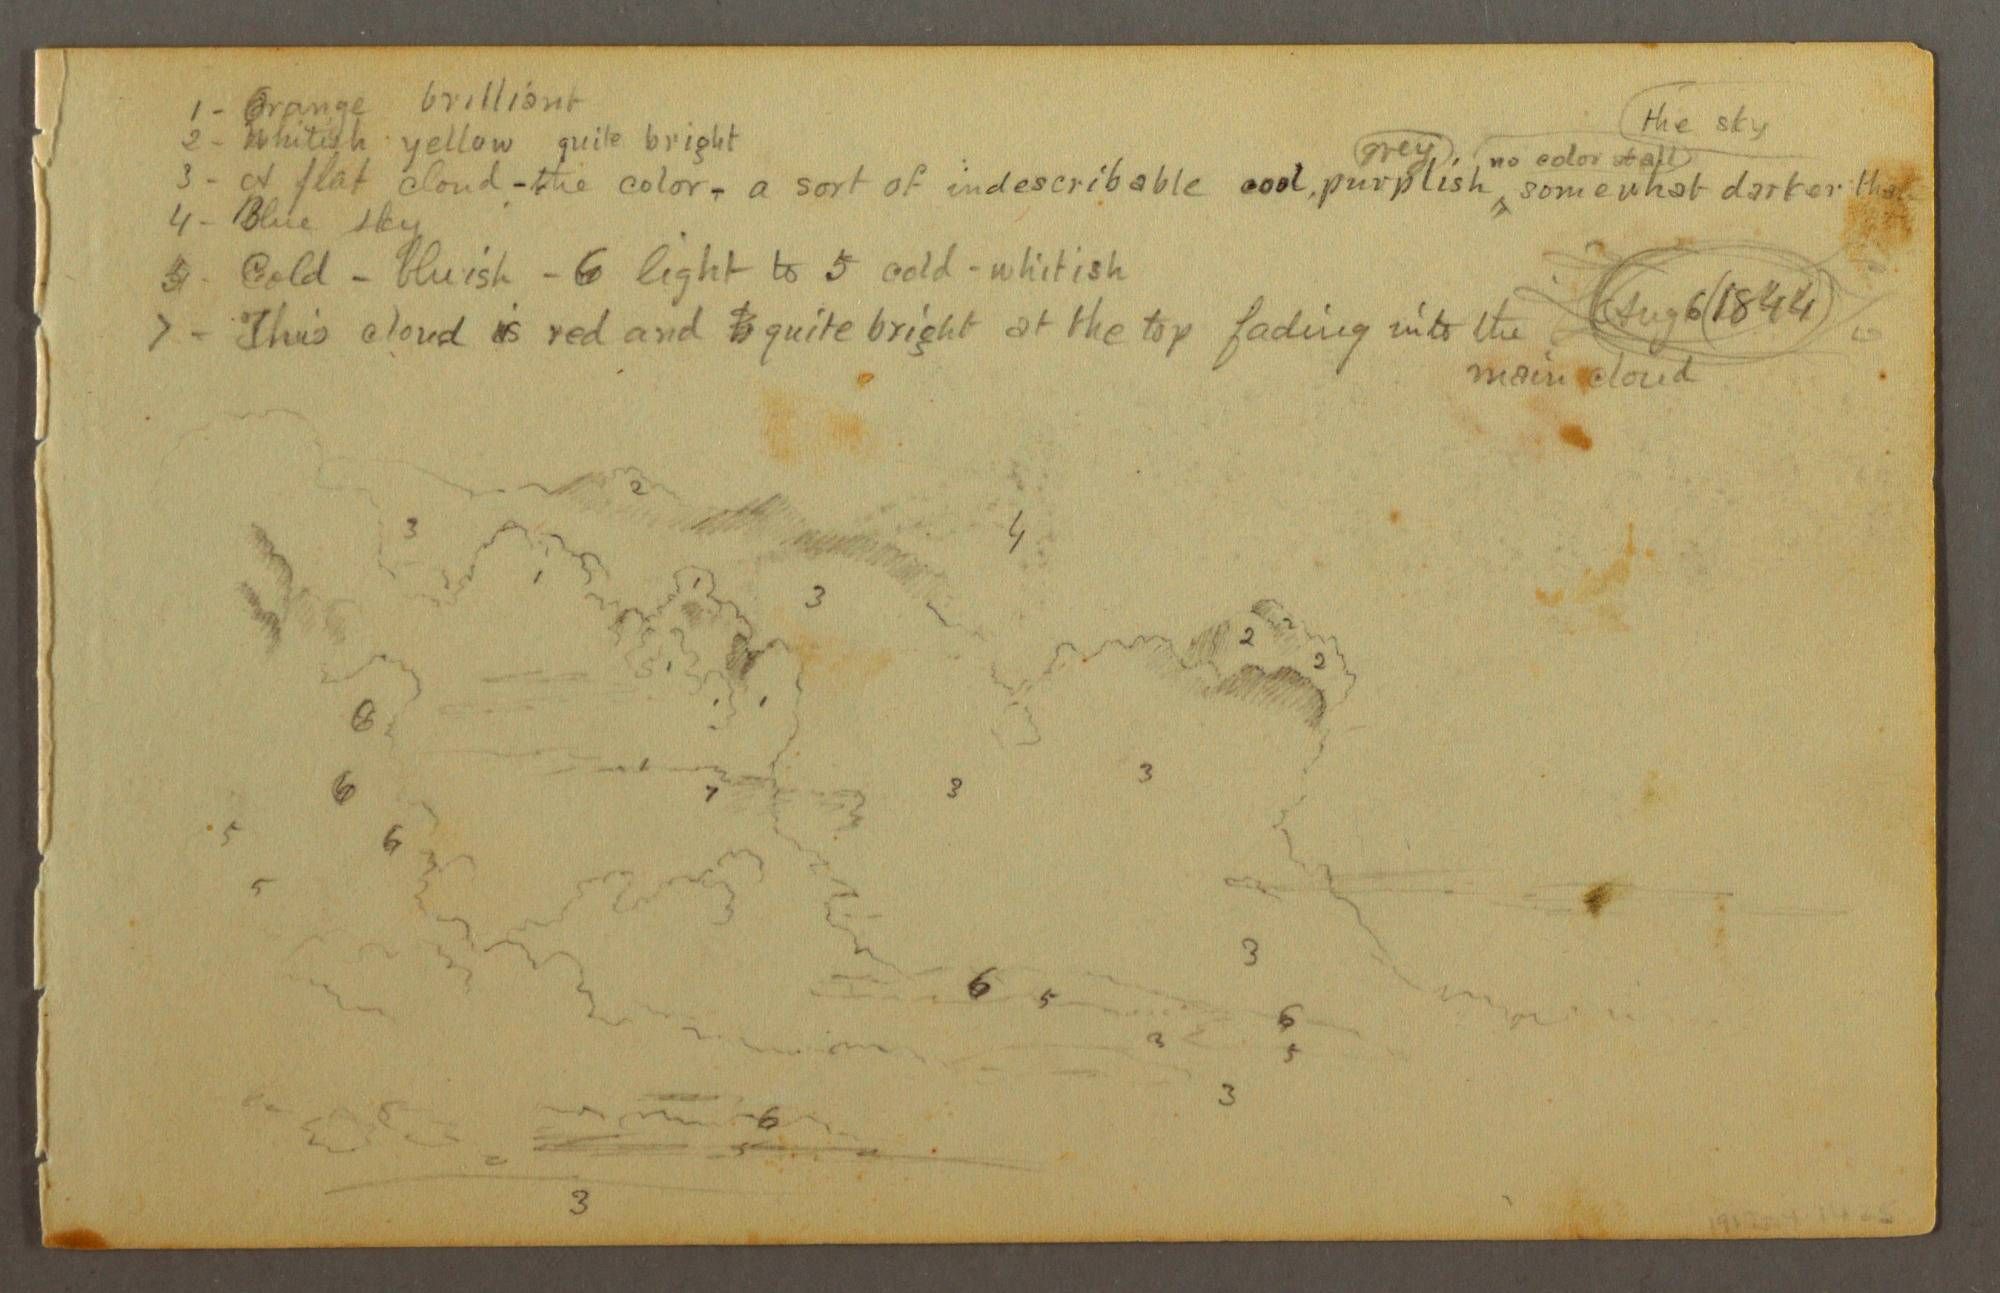 1 - Orange brilliant
2 - Whitish yellow quite bright
the sky
grey no color at all
3 - A flat cloud - the color - a sort of indescribable cool, purplish somewhat darker than
4 - Blue sky
5 - Cold - bluish - 6 light to 5 cold - whitish
7 - This cloud is red and quite bright at the top fading into the
main cloud
Aug 6 (1844)
2
3
4
1
1
3
2
2
1
1
1
6
3
3
6
7
5
6
5
3
6
5
6
3
5
3
6
5
3